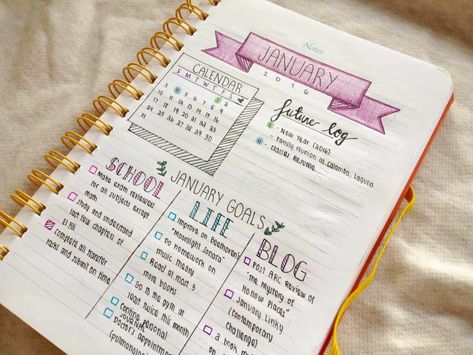 Notes
JANUARY
2016
CALENDAR
S M T W T F S
future log
- New Year (2016)
- family reunion at Calamba, Laguna
- classes resume
JANUARY GOALS
SCHOOL
Make exam reviewers
for all subjects except
math
Study and understand
last few chapters of
El Fili
complete all transfer
tasks and submit on time
LIFE
Improve on Beethoven's
"Moonlight Sonata"
Do music theory
Read at least 3
more books
Go to the gym at
least twice this month
doctor's appointment
BLOG
Post ARC review of
"The Mystery of
Hollow Places"
January Linky
(contemporary
challenge)
a book